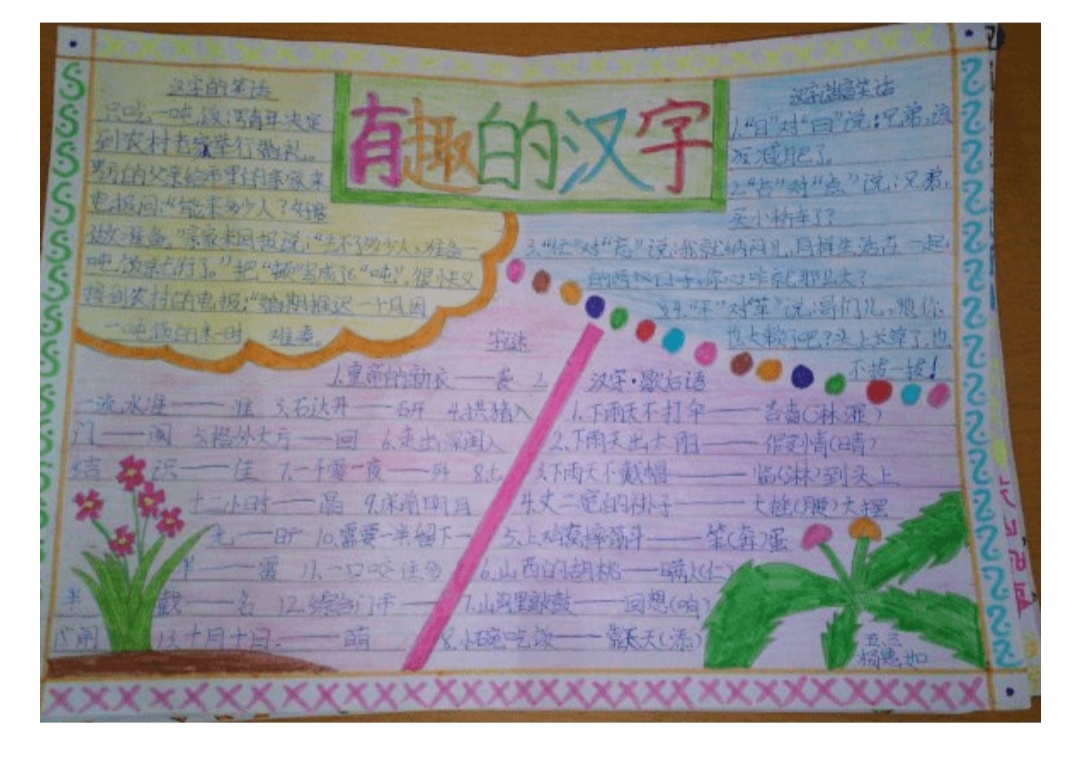 有趣的汉字
汉字的笑话
只吃一吨饭 青年决定
到农村老家举行婚礼。
男方的父亲给市里的亲家来
电报问:"能来多少人?好
做准备。"亲家来回报说:"去不了多少人,准备一
吨饭就行了。"把"顿"写成了"吨",很快又
接到农村的电报:"婚期推迟一个月因
一吨饭 一时 难凑。
汉字谐音笑话
1."日"对"曰"说:兄弟,该
减肥了。
2."占"对"点"说:兄弟,
买小轿车了?
3. 对"忘"说:我就纳闷儿,同样生活在一起
的两颗日子,你心咋就那么大?
对"苹"说:哥们儿,想你
也太懒了吧?头上长草了,也
不拔一拔!
字谜
1.皇帝的新衣——袭 2.
一流水准——准 3.石达开——研 4.拱猪入
门——阂 5.格外大方——回 6.走出深闺人
结 识——佳 7.一不要一夜——歼 8.七
十二小时——晶 9.床前明月
光——旷 10.需要一半留下一
半——雷 11.一口咬住多
半 截——名 12.综合门市——
闹 13.十月十日——萌
汉字·歇后语
1.下雨天不打伞——吝啬(淋湿)
2.下雨天出太阳——假情(晴)
3.下雨天不戴帽——临(淋)到头上
4.丈二宽的 子——大摇(腰)大摆
5.上鸡窝摔筋斗——笨(奔)蛋
6.山西的胡桃——明火(仁)
7.山沟里敲鼓——回想(响)
8.小碗吃饭——靠天(添)
五、三
杨惠如